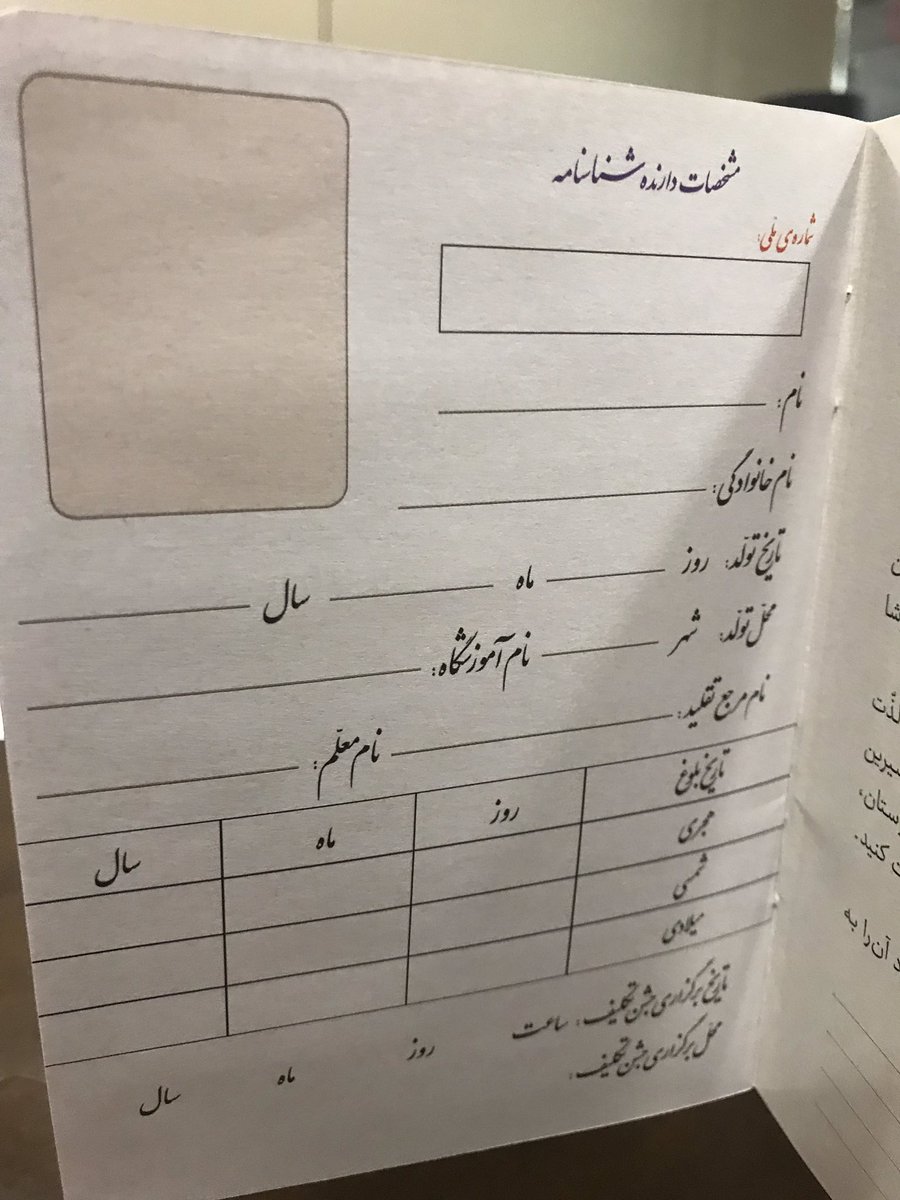 مشخصات دارنده شناسنامه
شماره‌ی ملّی:
نام:
نام خانوادگی:
تاریخ تولّد: روز ماه سال
محلّ تولّد: شهر نام آموزشگاه:
نام مرجع تقلید: نام معلّم:
تاریخ بلوغ روز ماه سال
هجری
شمسی
میلادی
تاریخ برگزاری جشن تکلیف: ساعت روز ماه سال
محل برگزاری جشن تکلیف:
لذّت
کنید.
آن‌را به